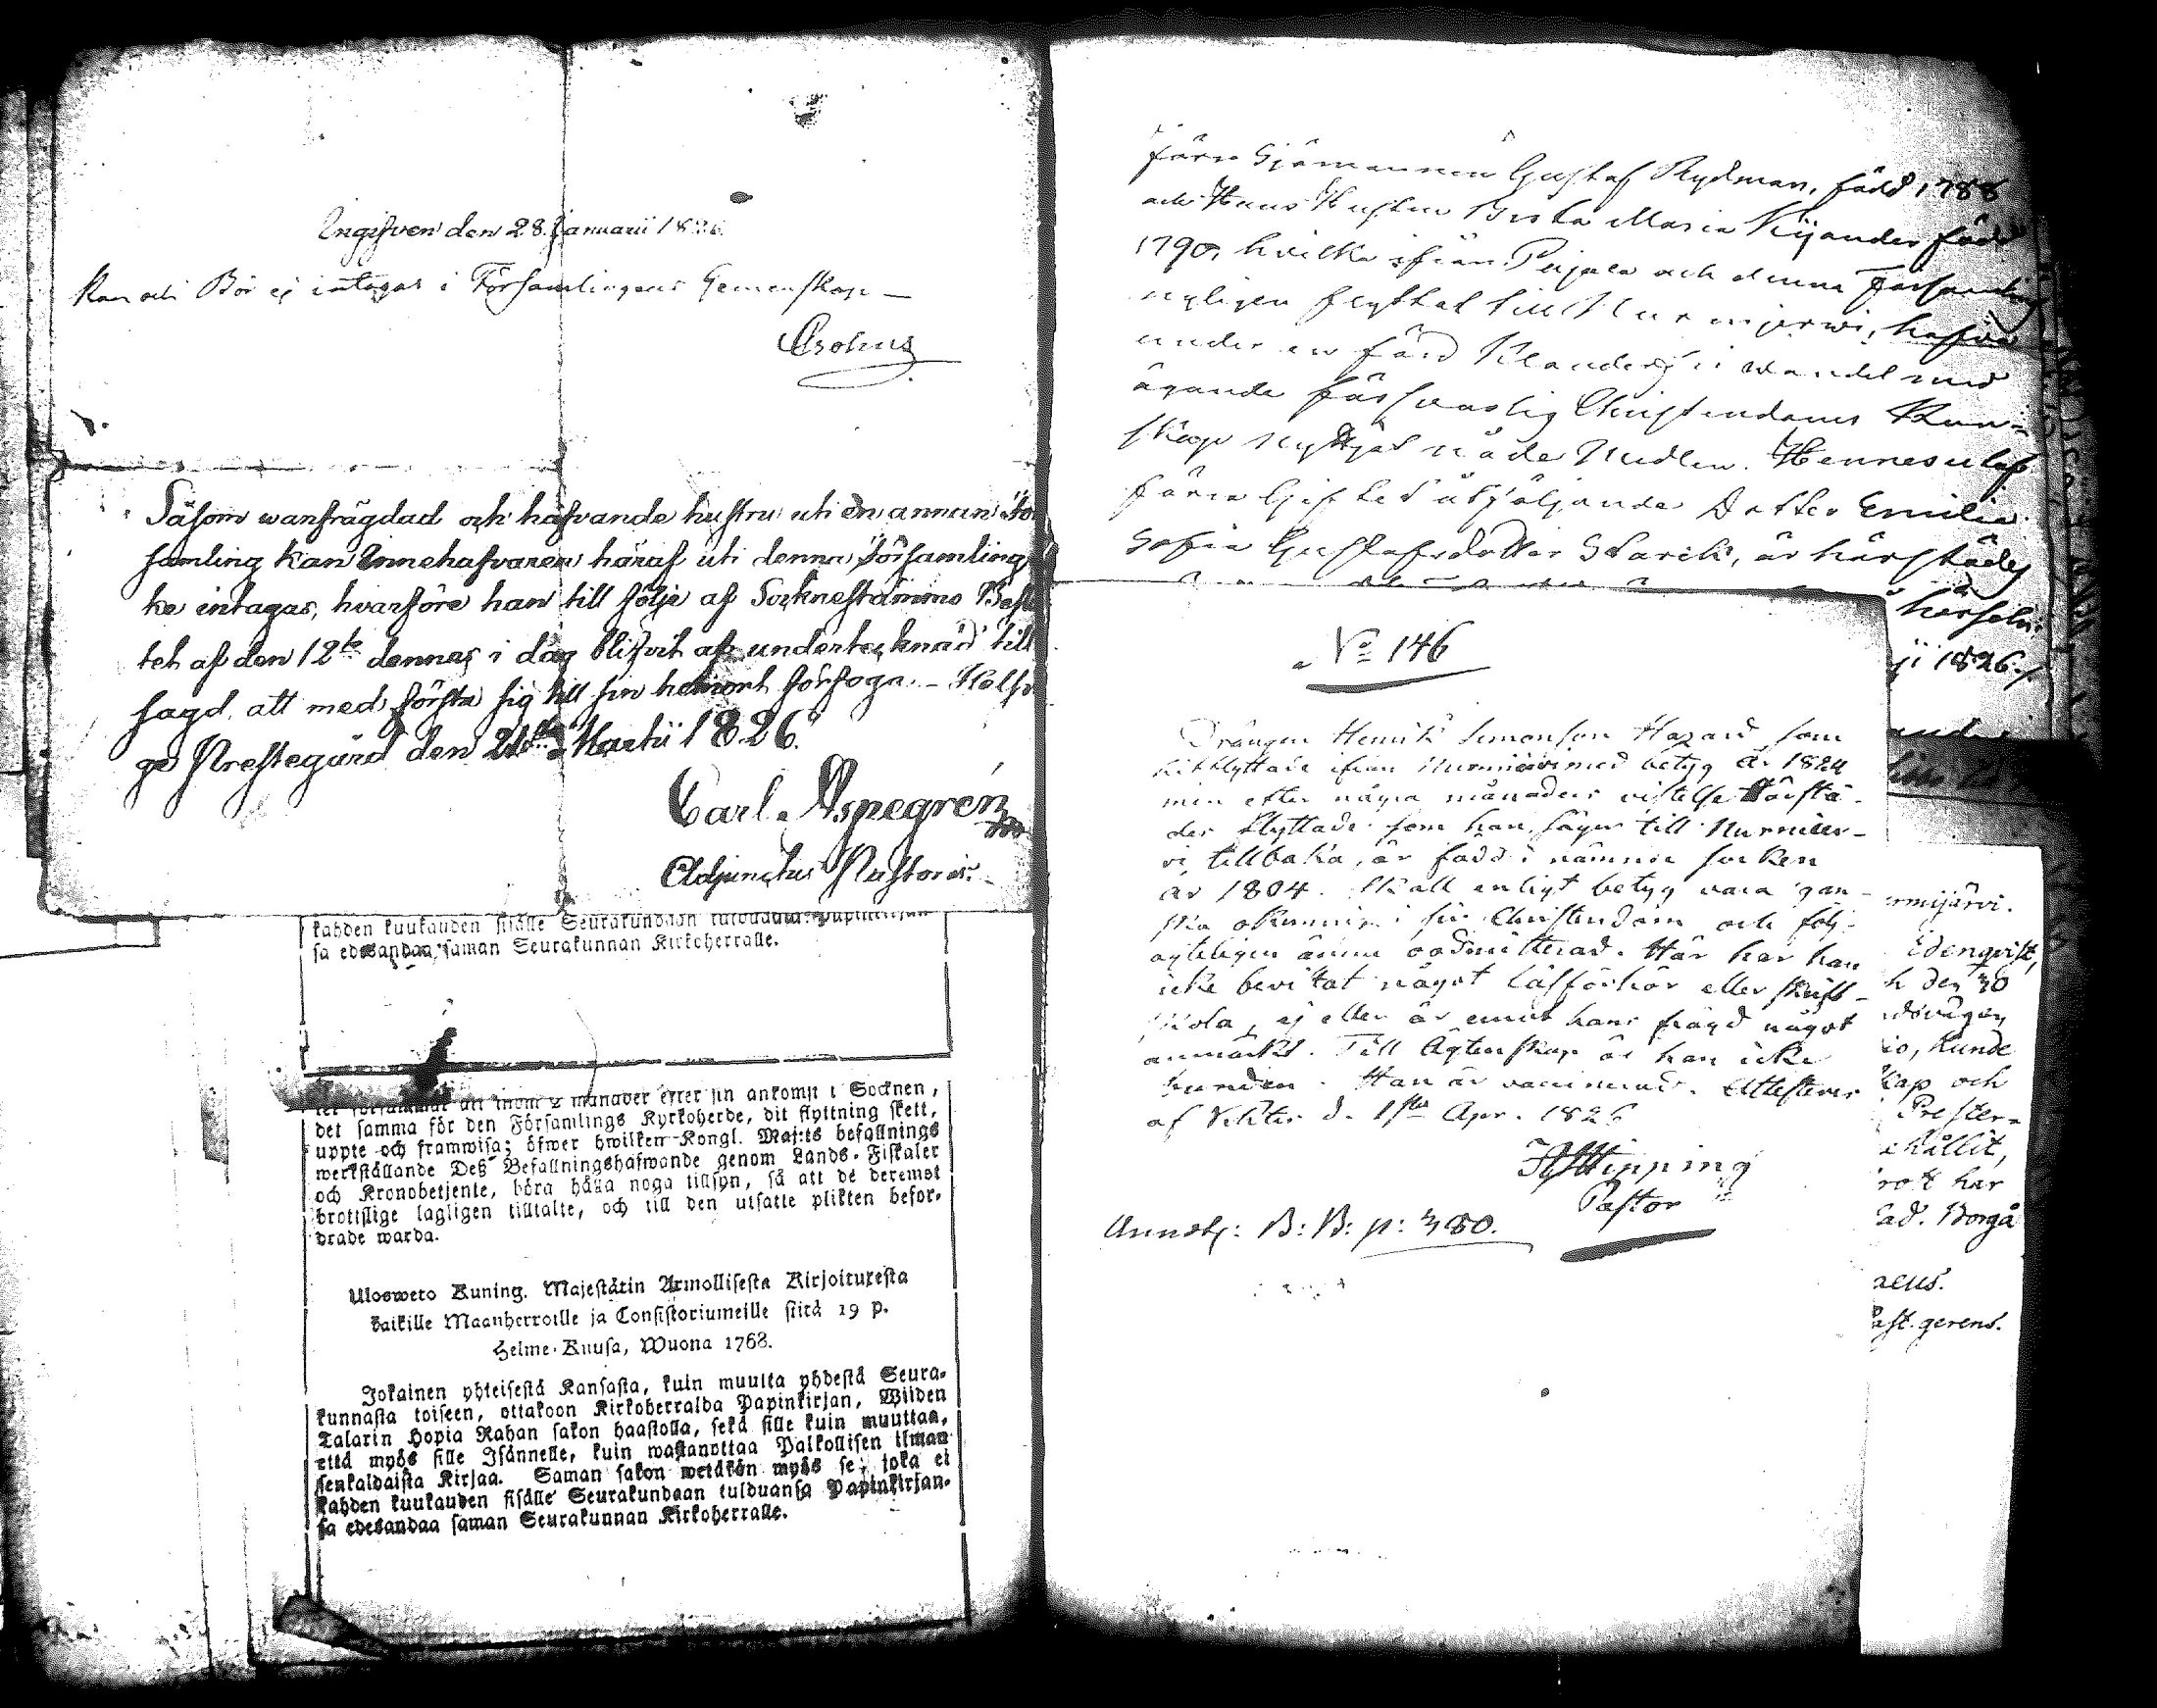 Ingifven den 28 Januarii 1826
Kan och Bör ej intagas i Församlingens Gemenskap —
Såsom wanfrägdad och hafvande hustru uti en annan för
samling kan Innehafvaren häraf uti denna församling
ke intagas, hvarföre han till följe af Socknestämmo Beslu
tet af den 12te dennes i dag blifvit af undertecknad till
sagd, att med första sig till sin hemort förfoga. — Helsin
ge Prestegård den 21sta Martii 1826.
Carl Aspegrén
Adjunctus Pastoris.
kahden kuukauden sisälle Seurakundaan tulduansa Papinkirjan
sa edesandaa saman Seurakunnan Kirkoherralle.
let försummat att inom 2 månader efter sin ankomst i Socknen,
det samma för den Församlings Kyrkoherde, dit flyttning skett,
uppte och framwisa; öfwer hwilken Kongl. Maj:ts befallnings
werkställande Deß Befallningshafwande genom Lands-Fiskaler
och Kronobetjente, böra hålla noga tillsyn, så att de deremot
brottslige lagligen tilltalte, och till den utsatte plikten befor-
drade warda.
Ulosweto Kuning. Majestätin Armollisesta Kirjoituxesta
kaikille Maanherroille ja Consistoriumeille siitä 19 p.
Helme-Kuusa, Wuona 1768.
Jokainen yhteisestä Kansasta, kuin muutta yhdestä Seura-
kunnasta toiseen, ottakoon Kirkoherralda Papinkirjan, Wiiden
Talarin Hopia Rahan sakon haastolla, sekä sille kuin muuttaa,
että myös sille Isännelle, kuin wastanottaa Palkollisen ilman
senkaldaista Kirjaa. Saman sakon wetäkön myös se, joka ei
kahden kuukauden sisälle Seurakundaan tulduansa Papinkirjan-
sa edesandaa saman Seurakunnan Kirkoherralle.
förre Sjömannen Gustaf Rydman, född 1788
och Hans Hustru Greta Maria Kijander född
1790, hvilka ifrån Pujala och denna Församling
nyligen flyttat till Nurmijerwi, hafva
under en förd Klanderfri wandel med
ägande försvarlig Christendoms Kun-
skap nyttjat nåde Medlen. Hennes utaf
förra Giftet åtföljande Dotter Emilia
Sofia Gustafsdotter Starck, är härstädes
ji 1826.
No 146
Drängen Henrik Simonson Hazard som
hitflyttade ifrån Nurmijärvi med betyg år 1824
men efter några månaders vistelse härstä-
des flyttade som han säger till Nurmijer-
vi tillbaka, är född i nämnde socken
år 1804. Skall enligt betyg vara gan-
ska okunnig i sin Christendom och följ-
agteligen ännu oadmitterad. Här har han
icke bevistat något läsförhör eller skrift-
skola, ej eller är emot hans frägd något
anmärkt. Till Ägtenskap är han icke
bunden. Han är vaccinerad. Attesteras
af Vichtis d. 1sta Apr. 1826
Hipping
Pastor
Annot: B: B: p: 380.
rmijärvi.
Edenqvist,
h den 30
io, Kunde
kap och
Prester-
ehållit,
rott har
ad. Borgå
aeus.
ast. gerens.